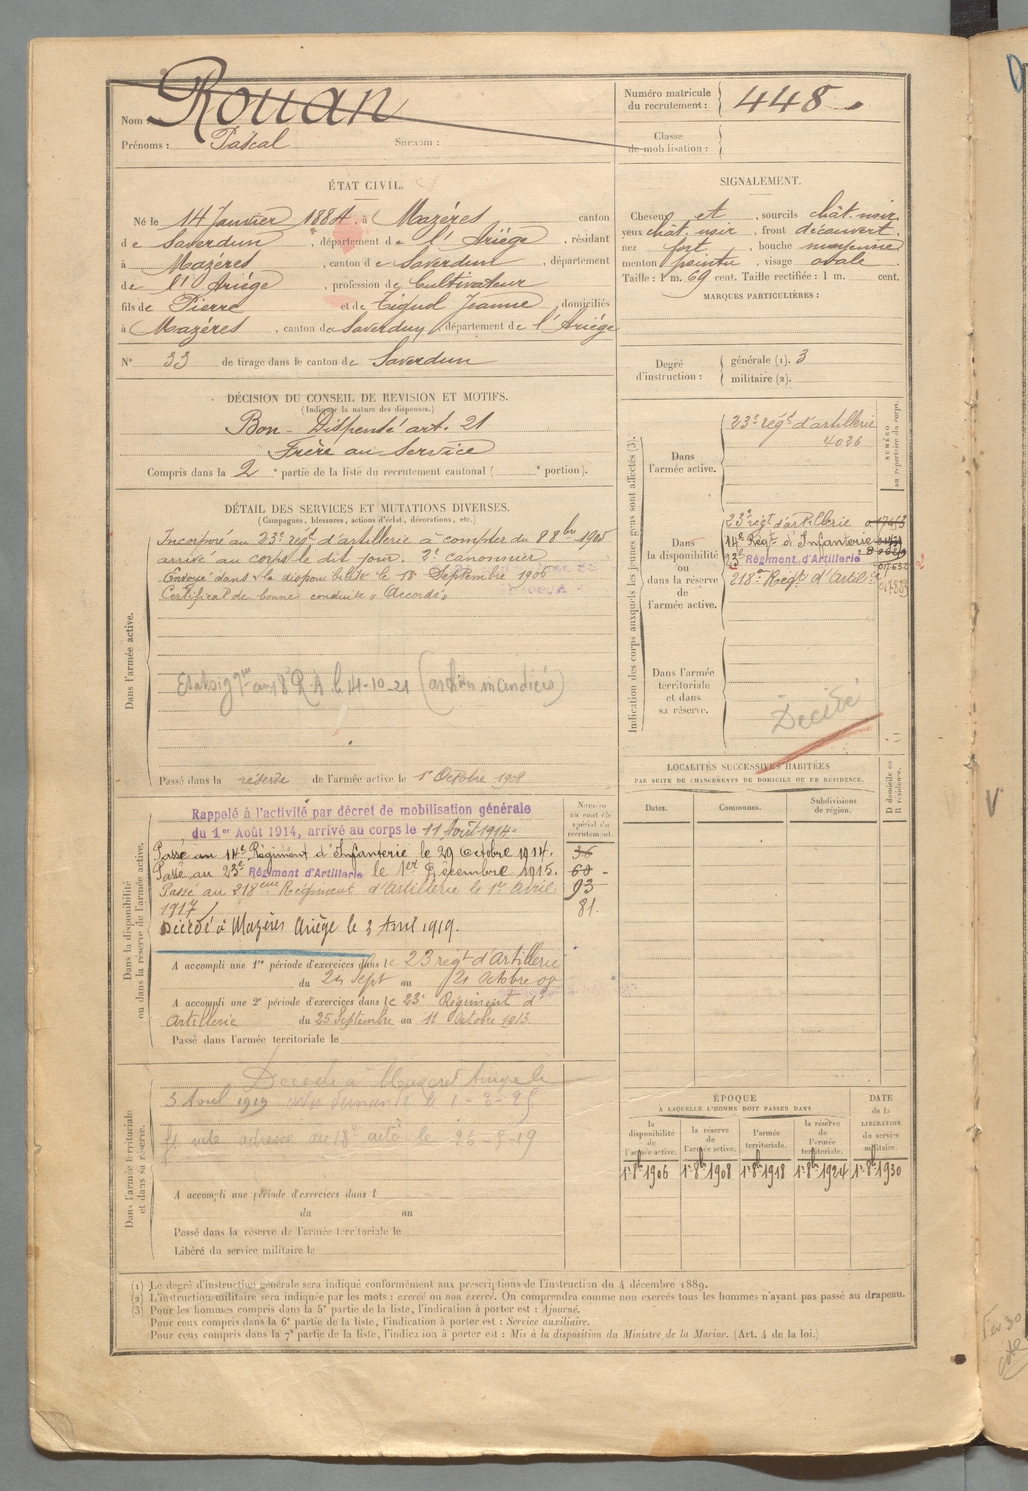 Nom : Rouan
Prénoms : Pascal Surnom :
Numéro matricule du recrutement : 448
Classe de mobilisation :
ÉTAT CIVIL.
Né le 14 Janvier 1884, à Mazères canton
de Saverdun, département de l'Ariège, résidant
à Mazères, canton de Saverdun, département
de l'Ariège, profession de Cultivateur
fils de Pierre et de Tignol Jeanne, domiciliés
à Mazères, canton de Saverdun, département de l'Ariège
N° 33 de tirage dans le canton de Saverdun
SIGNALEMENT.
Cheveux et, sourcils chât. noir
yeux chât. noir, front découvert
nez fort, bouche moyenne
menton pointu, visage ovale.
Taille : 1 m. 69 cent. Taille rectifiée : 1 m. cent.
MARQUES PARTICULIÈRES :
Degré d'instruction : générale (1). 3
militaire (2).
DÉCISION DU CONSEIL DE REVISION ET MOTIFS.
(Indiquer la nature des dispenses.)
Bon - Dispensé art. 21
Frère au service
Compris dans la 2e partie de la liste du recrutement cantonal ( e portion).
DÉTAIL DES SERVICES ET MUTATIONS DIVERSES.
(Campagnes, blessures, actions d'éclat, décorations, etc.)
Dans l'armée active.
Incorporé au 23e régt d'artillerie à compter du 8 8bre 1905
arrivé au corps le dit jour. 2e canonnier
Envoyé dans la disponibilité le 18 Septembre 1906
Certificat de bonne conduite "Accordé"
le 14-10-21
Passé dans la réserve de l'armée active le 1er Octobre 1908
Dans la disponibilité ou dans la réserve de l'armée active.
Numéro au contrôle spécial du recrutement.
Rappelé à l'activité par décret de mobilisation générale
du 1er Août 1914, arrivé au corps le 11 Août 1914.
Passé au 14e Régiment d'Infanterie le 29 Octobre 1914. 36
Passé au 23e Régiment d'Artillerie le 1er Décembre 1915. 60
Passé au 218eme Régiment d'Artillerie le 1er Avril 93
1917 81
Décédé à Mazères Ariège le 3 Avril 1919.
A accompli une 1re période d'exercices dans le 23 regt d'Artillerie
du 2 Sept au 21 Octobre 09
A accompli une 2e période d'exercices dans le 23e Régiment d'
Artillerie du 25 Septembre au 11 Octobre 1913
Passé dans l'armée territoriale le
Dans l'armée territoriale et dans sa réserve.
3 Avril 1919
A accompli une période d'exercices dans l
du au
Passé dans la réserve de l'armée territoriale le
Libéré du service militaire le
Indication des corps auxquels les jeunes gens sont affectés (3).
NUMÉRO au répertoire du corps.
Dans l'armée active.
23e régt d'artillerie
4026
Dans la disponibilité ou dans la réserve de l'armée active.
23e régt d'artillerie
14e Régt d'Infanterie
23e Régiment d'Artillerie
218e Régt d'Artillie
Dans l'armée territoriale et dans sa réserve.
Décédé
LOCALITÉS SUCCESSIVES HABITÉES
PAR SUITE DE CHANGEMENTS DE DOMICILE OU DE RÉSIDENCE.
Dates. Communes. Subdivisions de région. D domicile ou R résidence.
ÉPOQUE
À LAQUELLE L'HOMME DOIT PASSER DANS
DATE de la LIBÉRATION du service militaire.
la disponibilité de l'armée active. la réserve de l'armée active. l'armée territoriale. la réserve de l'armée territoriale.
1er 8b 1906 1er 8b 1908 1er 8b 1918 1er 8b 1924 1er 8b 1930
(1) Le degré d'instruction générale sera indiqué conformément aux prescriptions de l'instruction du 4 décembre 1889.
(2) L'instruction militaire sera indiquée par les mots : exercé ou non exercé. On comprendra comme non exercés tous les hommes n'ayant pas passé au drapeau.
(3) Pour les hommes compris dans la 5e partie de la liste, l'indication à porter est : Ajourné.
Pour ceux compris dans la 6e partie de la liste, l'indication à porter est : Service auxiliaire.
Pour ceux compris dans la 7e partie de la liste, l'indication à porter est : Mis à la disposition du Ministre de la Marine. (Art. 4 de la loi.)